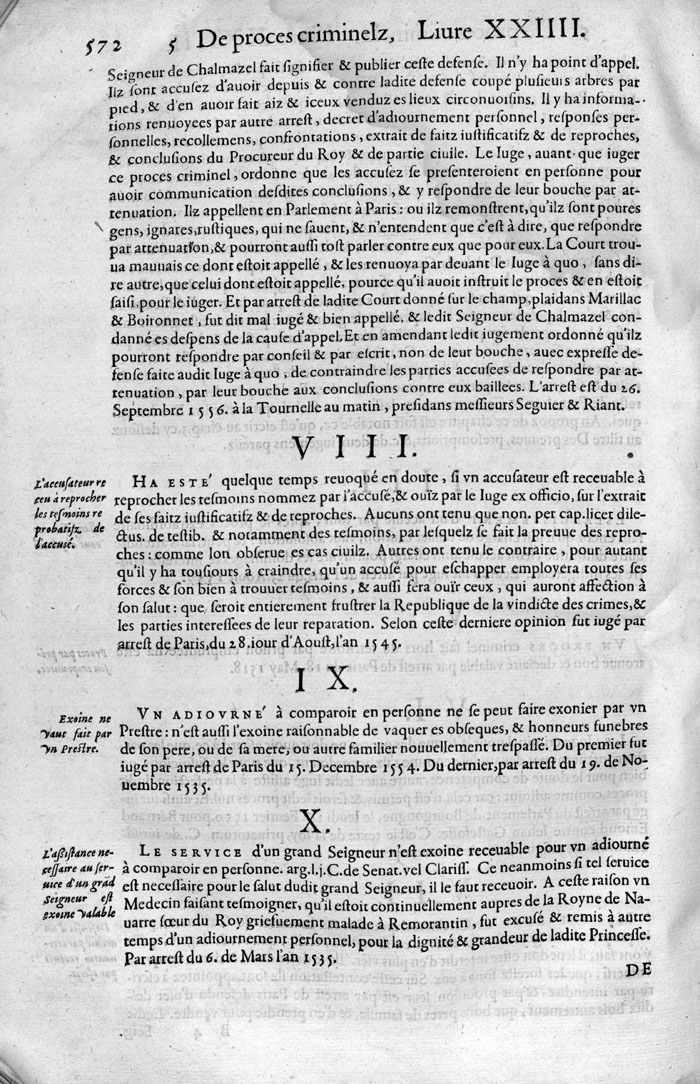 572 5 De proces criminelz, Liure XXIIII.
Seigneur de Chalmazel fait signifier & publier ceste defense. Il n'y ha point d'appel.
Ilz sont accusez d'auoir depuis & contre ladite defense coupé plusieurs arbres par
pied, & d'en auoir fait aiz & iceux venduz es lieux circonuoisins. Il y ha informa-
tions renuoyees par autre arrest, decret d'adiournement personnel, responses per-
sonnelles, recollemens, confrontations, extrait de faitz iustificatifz & de reproches,
& conclusions du Procureur du Roy & de partie ciuile. Le Iuge, auant que iuger
ce proces criminel, ordonne que les accusez se presenteroient en personne pour
auoir communication desdites conclusions, & y respondre de leur bouche par at-
tenuation. Ilz appellent en Parlement à Paris: ou ilz remonstrent, qu'ilz sont poures
gens, ignares, rustiques, qui ne sauent, & n'entendent que c'est à dire, que respondre
par attenuation, & pourront aussi tost parler contre eux que pour eux. La Court trou-
ua mauuais ce dont estoit appellé, & les renuoya par deuant le Iuge à quo, sans di-
re autre, que celui dont estoit appellé, pource qu'il auoit instruit le proces & en estoit
saisi, pour le iuger. Et par arrest de ladite Court donné sur le champ, plaidans Marillac
& Boironnet, fut dit mal iugé & bien appellé, & ledit Seigneur de Chalmazel con-
danné es despens de la cause d'appel. Et en amendant ledit iugement ordonné qu'ilz
pourront respondre par conseil & par escrit, non de leur bouche, auec expresse de-
fense faite audit Iuge à quo, de contraindre les parties accusees de respondre par at-
tenuation, par leur bouche aux conclusions contre eux baillees. L'arrest est du 26.
Septembre 1556. à la Tournelle au matin, presidans messieurs Seguier & Riant.
VIII.
L'accusateur re
ceu à reprocher
les tesmoins re
probatifz de
l'accusé.
HA ESTE' quelque temps reuoqué en doute, si vn accusateur est receuable à
reprocher les tesmoins nommez par l'accusé, & ouïz par le Iuge ex officio, sur l'extrait
de ses faitz iustificatifz & de reproches. Aucuns ont tenu que non. per cap. licet dile-
ctus. de testib. & notamment des tesmoins, par lesquelz se fait la preuue des repro-
ches: comme lon obserue es cas ciuilz. Autres ont tenu le contraire, pour autant
qu'il y ha tousiours à craindre, qu'un accusé pour eschapper employera toutes ses
forces & son bien à trouuer tesmoins, & aussi fera ouïr ceux, qui auront affection à
son salut: que seroit entierement frustrer la Republique de la vindicte des crimes, &
les parties interessees de leur reparation. Selon ceste derniere opinion fut iugé par
arrest de Paris, du 28. iour d'Aoust, l'an 1545.
IX.
Exoine ne
vaut fait par
vn Prestre.
VN ADIOVRNE' à comparoir en personne ne se peut faire exonier par vn
Prestre: n'est aussi l'exoine raisonnable de vaquer es obseques, & honneurs funebres
de son pere, ou de sa mere, ou autre familier nouuellement trespassé. Du premier fut
iugé par arrest de Paris du 15. Decembre 1554. Du dernier, par arrest du 19. de No-
uembre 1535.
X.
L'assistance ne-
cessaire au ser-
uice d'un grād
Seigneur est
exoine valable
LE SERVICE d'un grand Seigneur n'est exoine receuable pour vn adiourné
à comparoir en personne. arg. l. j. C. de Senat. vel Clariss. Ce neanmoins si tel seruice
est necessaire pour le salut dudit grand Seigneur, il le faut receuoir. A ceste raison vn
Medecin faisant tesmoigner, qu'il estoit continuellement aupres de la Royne de Na-
uarre sœur du Roy griefuement malade à Remorantin, fut excusé & remis à autre
temps d'un adiournement personnel, pour la dignité & grandeur de ladite Princesse.
Par arrest du 6. de Mars l'an 1535.
DE